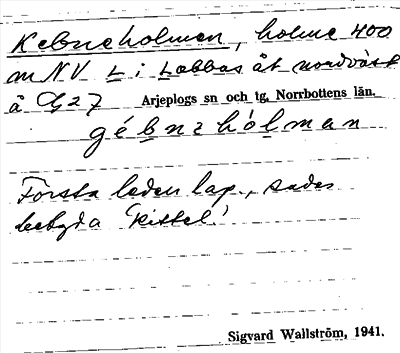 Kebneholmen, holme 400
m NV L i Labbas åt nordväst
å G27 Arjeplogs sn och tg, Norrbottens län.
gébnehólman
Första leden lap., sades
betyda 'kittel'
Sigvard Wallström, 1941.